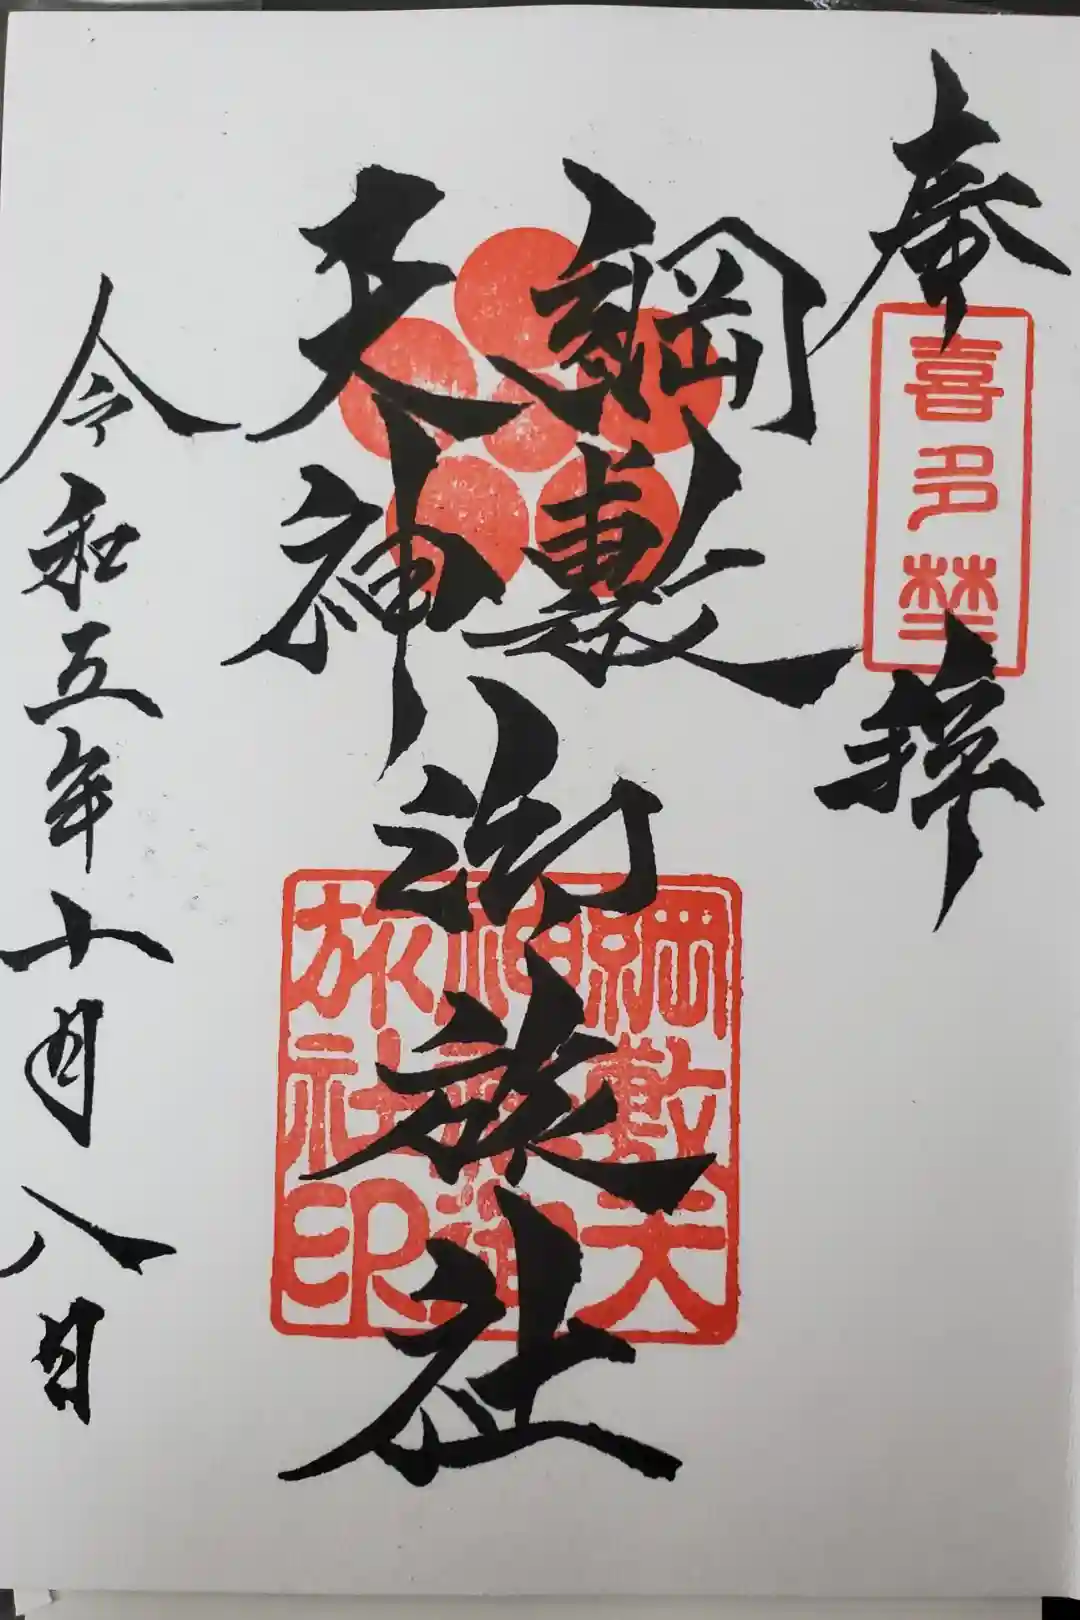 奉拝
喜多埜
綱敷
天神
御旅社
綱敷天
旅社印
令和五年十月八日